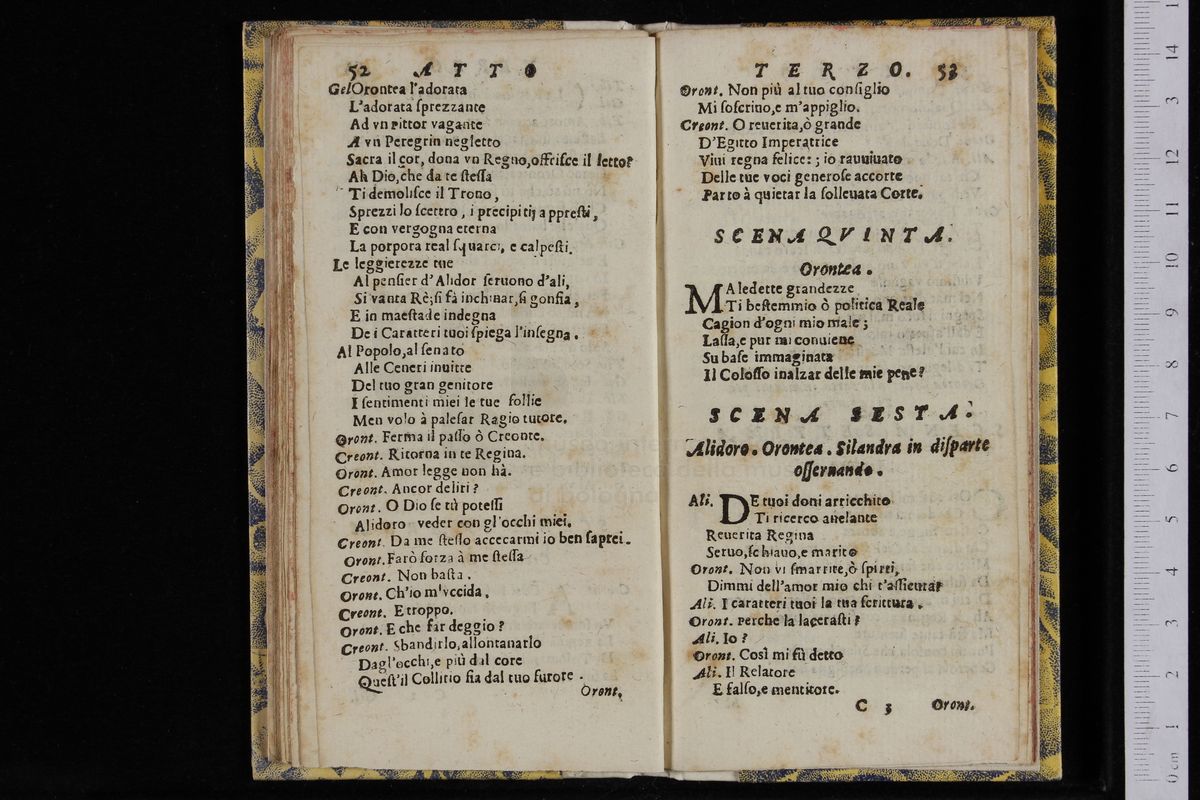 52 ATTO
GelOrontea l'adorata
L'adorata ſprezzante
Ad vn Pittor vagante
A vn Peregrin negletto
Sacra il cor, dona vn Regno,offriſce il letto?
Ah Dio,che da te ſteſſa
Ti demoliſce il Trono,
Sprezzi lo ſcettro, i precipitij appreſti,
E con vergogna eterna
La porpora real ſquarci, e calpeſti.
Le leggierezze tue
Al penſier d'Alidor ſeruono d'ali,
Si vanta Rè;ſi fà inchinar,ſi gonfia,
E in maeſtade indegna
De i Caratteri tuoi ſpiega l'inſegna.
Al Popolo,al ſenato
Alle Ceneri inuitte
Del tuo gran genitore
I ſentimenti miei le tue follie
Men volo à paleſar Ragio tutore.
Oront. Ferma il paſſo ò Creonte.
Creont. Ritorna in te Regina.
Oront. Amor legge non hà.
Creont. Ancor deliri?
Oront. O Dio ſe tù poteſſi
Alidoro veder con gl'occhi miei.
Creont. Da me ſteſſo accecarmi io ben ſaprei.
Oront.Farò forza à me ſteſſa
Creont. Non baſta.
Oront. Ch'io m'vccida.
Creont. E troppo.
Oront. E che far deggio?
Creont. Sbandirlo,allontanarlo
Dagl'occhi,e più dal core
Queſt'il Collirio ſia dal tuo furore.
Oront.
TERZO. 53
Oront. Non più al tuo conſiglio
Mi ſoſcrino,e m'appiglio.
Creont. O reuerita,ò grande
D'Egitto Imperatrice
Viui regna felice: ; io rauuiuato
Delle tue voci generoſe accorte
Parto à quietar la ſolleuata Corte.
SCENA QVINTA.
Orontea.
MAledette grandezze
Ti beſtemmio ò politica Reale
Cagion d'ogni mio male;
Laſſa,e pur mi conuiene
Su baſe immaginata
Il Coloſſo inalzar delle mie pene?
SCENA SESTA.
Alidoro. Orontea. Silandra in diſparte
oſſeruando.
Ali. DE tuoi doni arricchito
Ti ricerco anelante
Reuerita Regina
Seruo,ſchiauo,e marito
Oront. Non vi ſmarrite,ò ſpirti,
Dimmi dell'amor mio chi t'aſſicura?
Ali. I caratteri tuoi la tua ſcrittura.
Oront. Perche la laceraſti?
Ali. Io?
Oront. Così mi fù detto
Ali. Il Relatore
E falſo,e mentitore.
C 3 Oront.